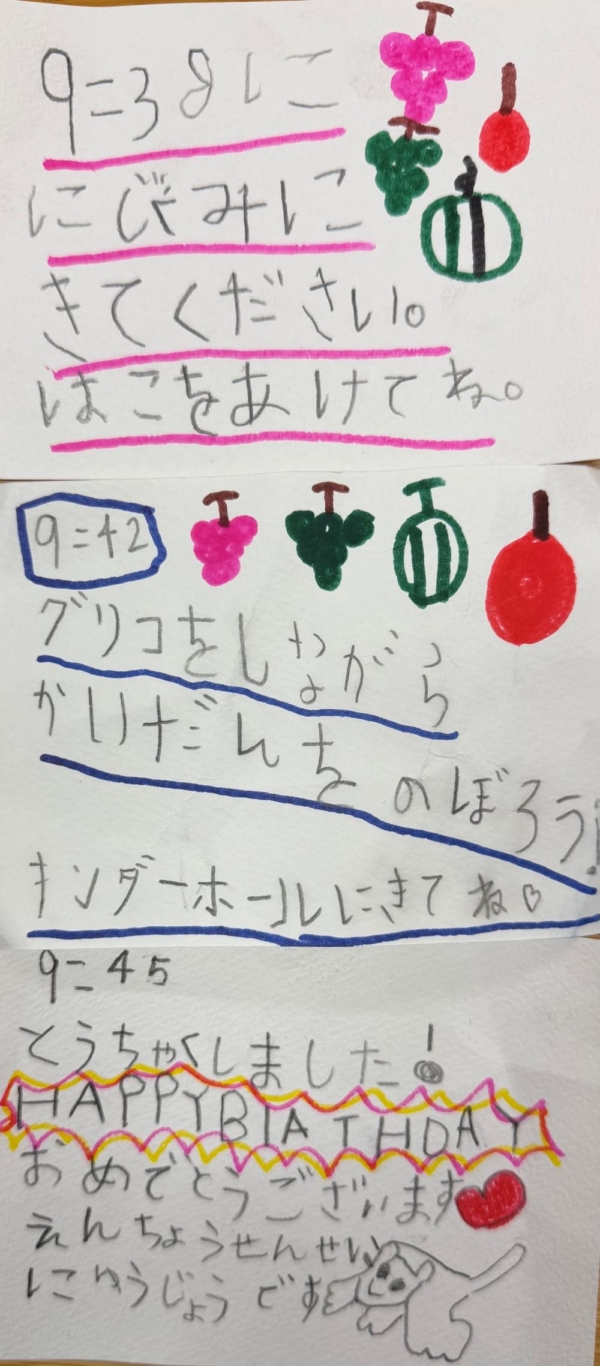 9=38しこ
にじぐみしこ
きてください。
はこをあけてね。
9=42
グリコをしながら
かいだんをのぼろう!
キンダーホールにきてね♡
9=45
とうちゃくしました!
HAPPYBIATHDAY
おめでとうございます
えんちょうせんせい
にゅうじょうです